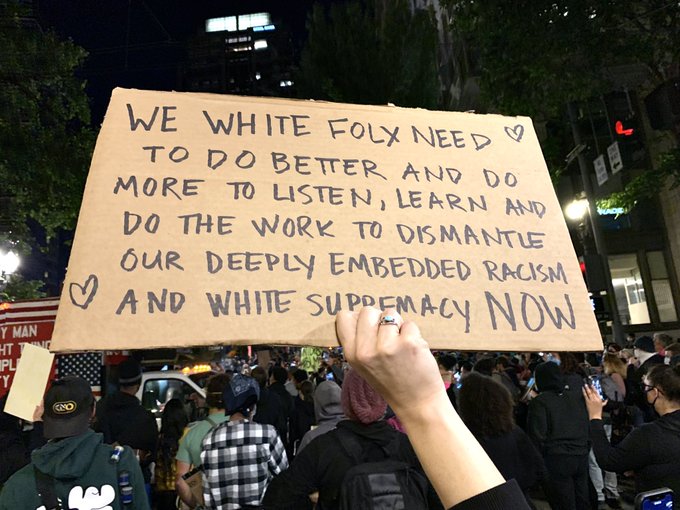 WE WHITE FOLX NEED
TO DO BETTER AND DO
MORE TO LISTEN, LEARN AND
DO THE WORK TO DISMANTLE
OUR DEEPLY EMBEDDED RACISM
AND WHITE SUPREMACY NOW
Y MAN